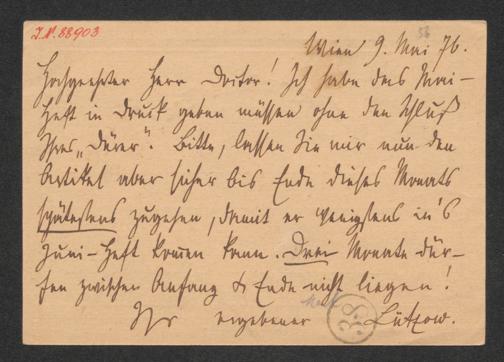 J.N. 88903
56
Wien 9. Mai 76.
Hochgeehrter Herr Doctor! Ich habe das Mai-
Heft in Druck geben müssen ohne den Schluß
Ihres „Dürer“. Bitte, lassen Sie mir nun den
Artikel aber sicher bis Ende dieses Monats
spätestens zugehen, damit er wenigstens in's
Juni-Heft kommen kann. Drei Monate dür-
fen zwischen Anfang & Ende nicht liegen!
Ihr ergebener Lützow.